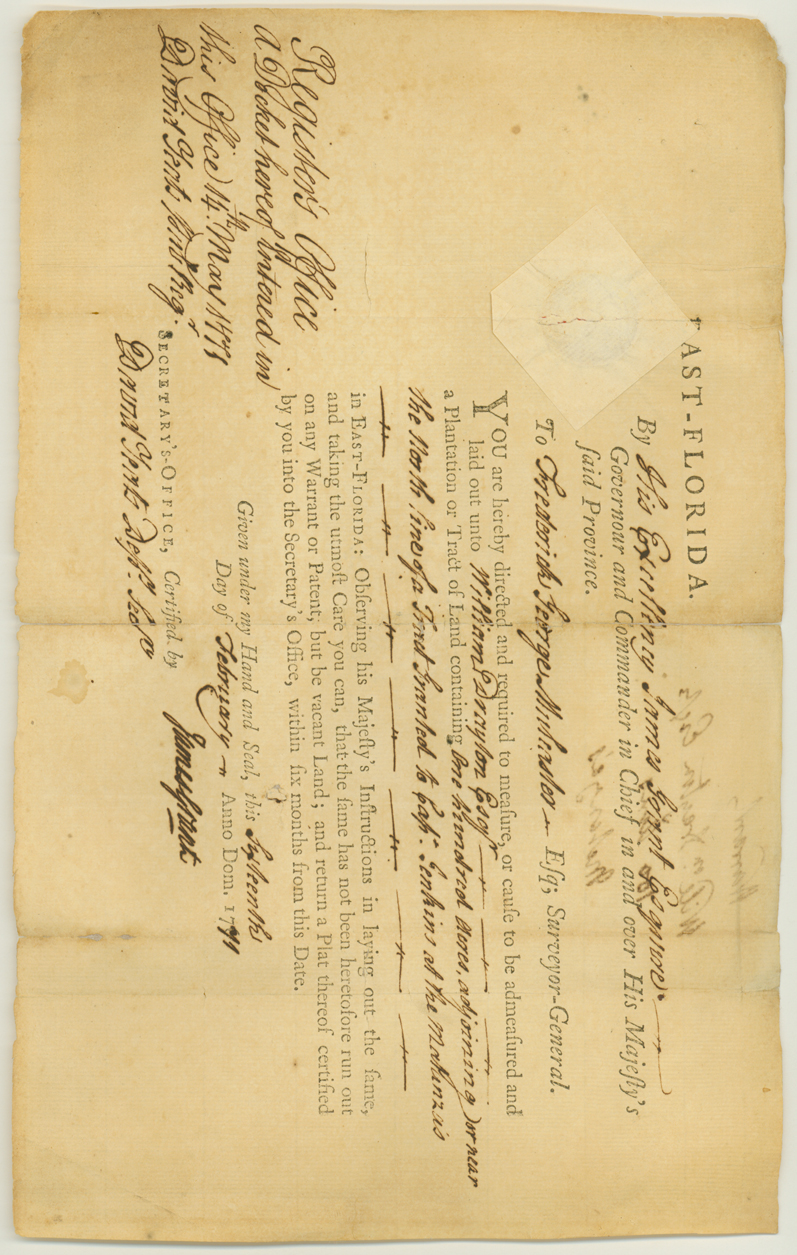 EAST-FLORIDA.
By His Excellency James Grant Esquire
Governour and Commander in Chief in and over His Majeſty's
ſaid Province.
To Frederick George Mulcaster Eſq; Surveyor-General.
YOU are hereby directed and required to meaſure, or cauſe to be admeaſured and
laid out unto William Drayton Esqr
a Plantation or Tract of Land containing One hundred Acres, adjoining or near
the North line of a Tract Granted to Capt. Jenkins at the Matanzais
in EAST-FLORIDA: Obſerving his Majeſty's Inſtructions in laying out the ſame,
and taking the utmoſt Care you can, that the ſame has not been heretofore run out
on any Warrant or Patent, but be vacant Land; and return a Plat thereof certified
by you into the Secretary's Office, within ſix months from this Date.
Given under my Hand and Seal, this Sixteenth
Day of February Anno Dom. 1771
James Grant
SECRETARY'S-OFFICE, Certified by
David Yeats Depy. Secy
Register's Office
A Docket hereof entered in
this Office 14th May 1771
David Yeats